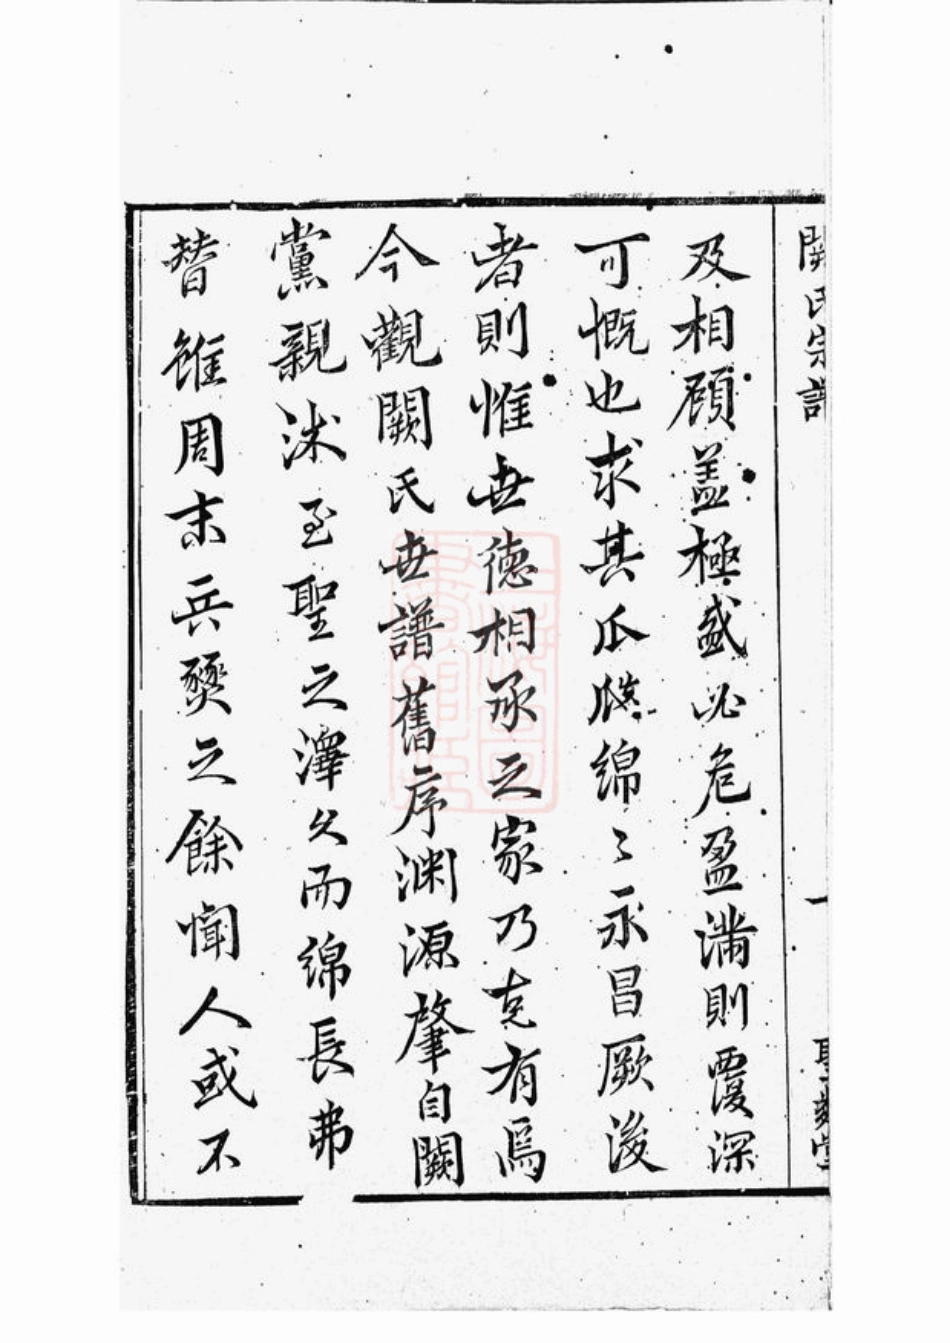 闕氏宗譜
一
及相顧盖極盛必危盈滿則覆深
可慨也求其瓜瓞綿〻永昌厥後
者則惟世德相承之家乃克有焉
今觀闕氏世譜舊序渊源肇自闕
黨親沐至聖之澤久而綿長弗
替雖周末兵燹之餘聞人或不